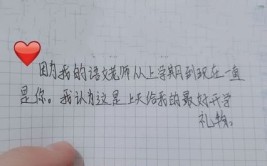 因为我的语文老师从上学期到现在一直
是你。我认为这是上天给我的最好开学
礼物。